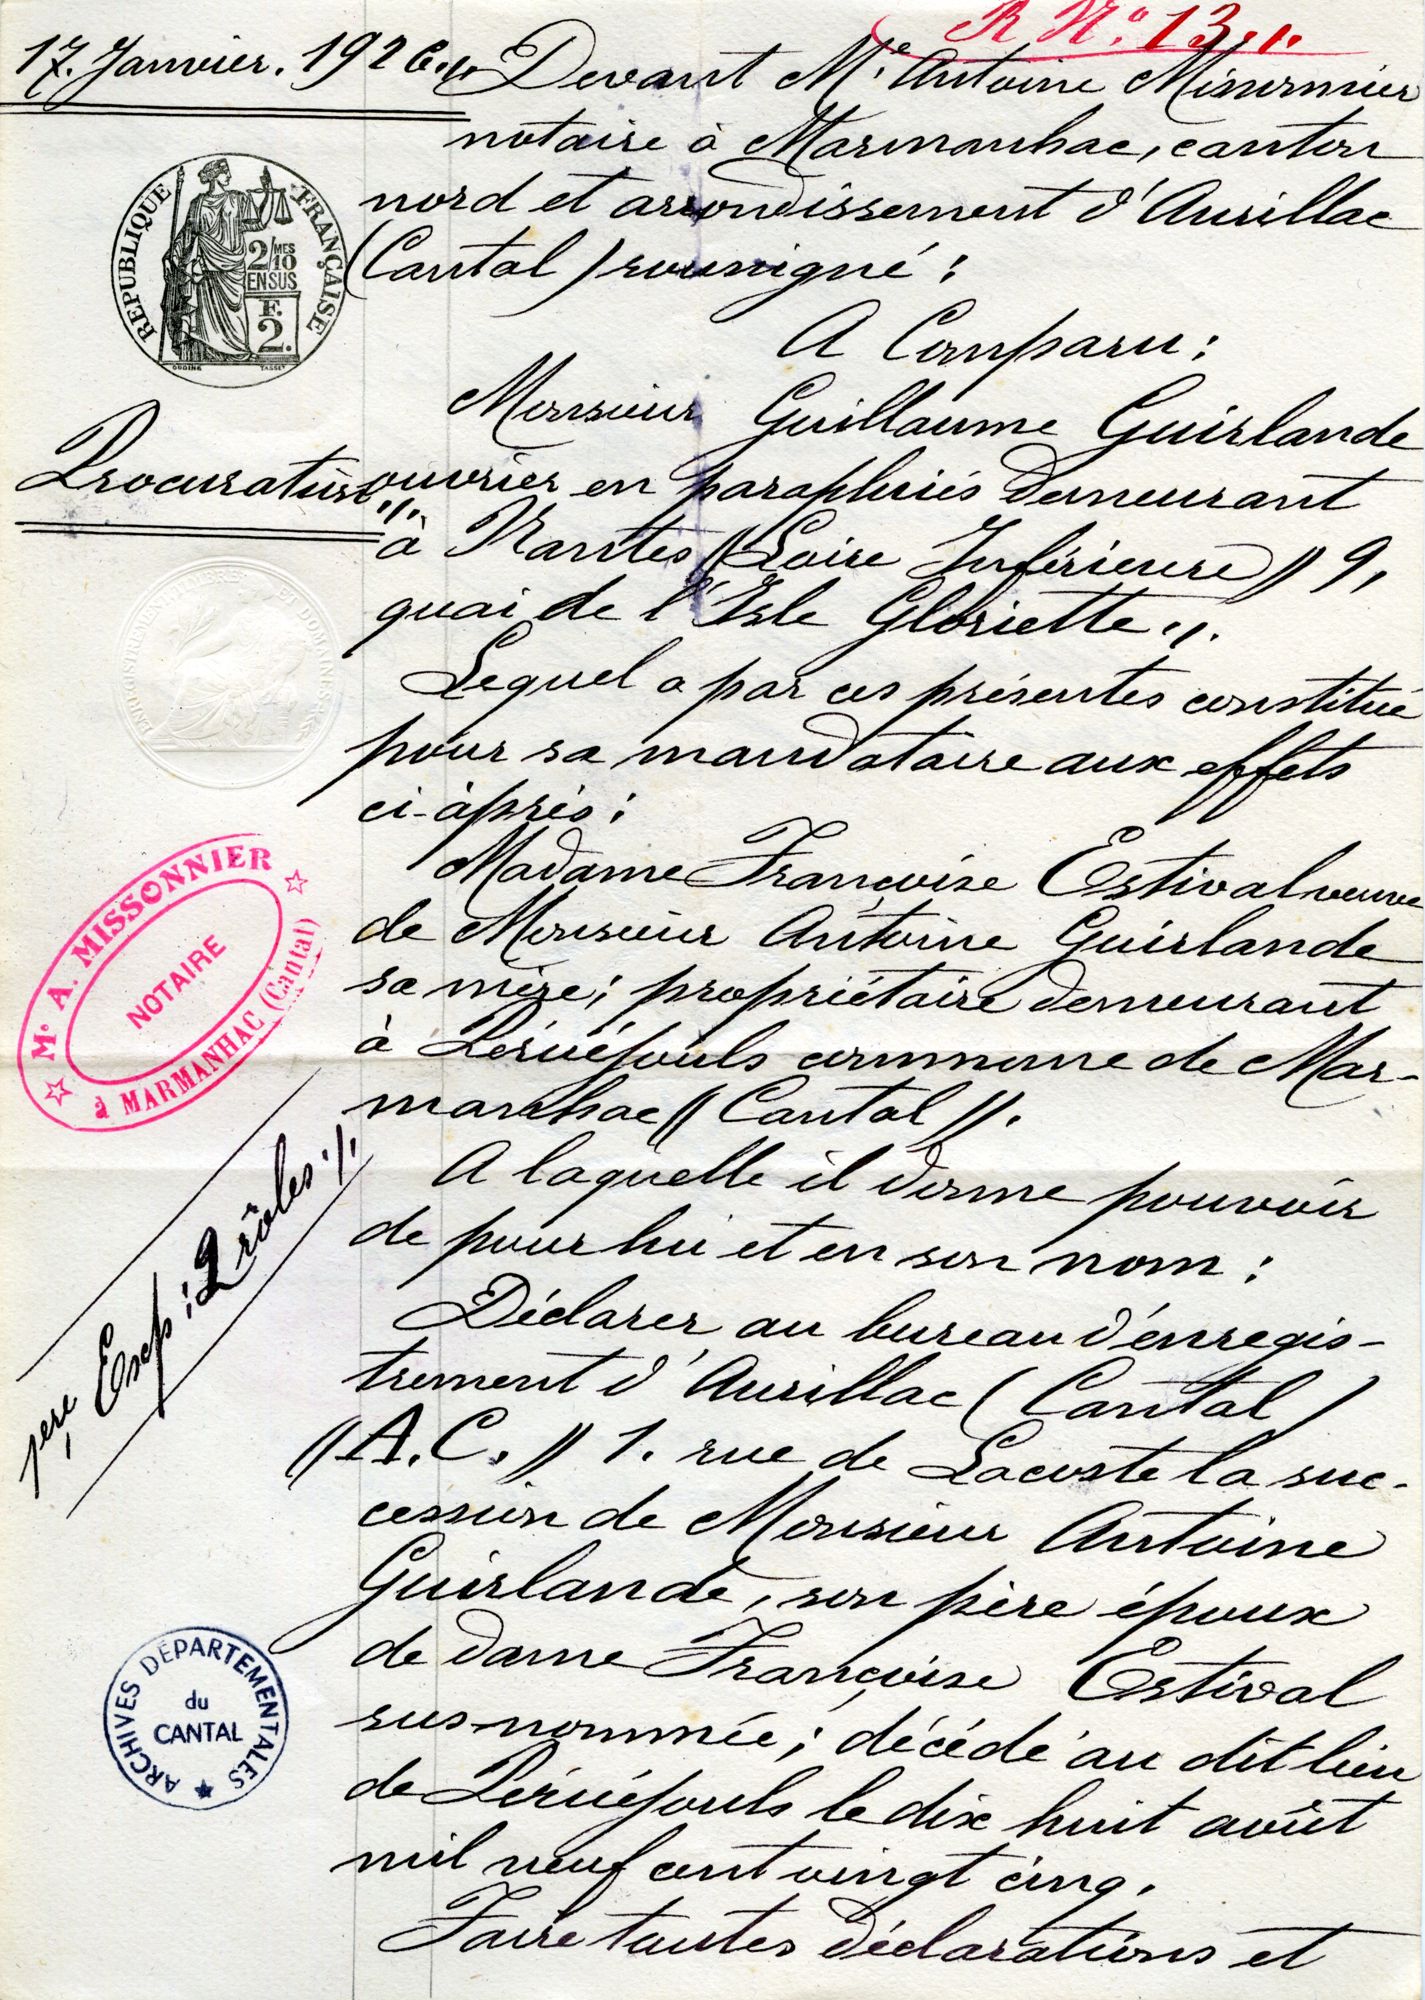 R N° 13.,.
17. Janvier. 1926.,.
Devant Me Antoine Missonnier
notaire à Marmanhac, canton
nord et arrondissement d'Aurillac
(Cantal) soussigné:
A Comparu:
Monsieur Guillaume Guirlande
Procuration.,.
ouvrier en parapluies demeurant
à Nantes ((Loire Inférieure)) 9,
quai de l'Isle Gloriette.,.
Lequel a par ces présentes constitué
pour sa mandataire aux effets
ci-après:
Madame Françoise Estival veuve
de Monsieur Antoine Guirlande
sa mère; propriétaire demeurant
à commune de Mar-
manhac ((Cantal)).
A laquelle il donne pouvoir
de pour lui et en son nom:
Déclarer au bureau d'enregis-
trement d'Aurillac (Cantal)
((A.C.)) 1. rue de Lacoste la suc-
cession de Monsieur Antoine
Guirlande, son père époux
de dame Françoise Estival
sus-nommée; décédé au dit lieu
de le dix huit août
mil neuf cent vingt cinq.
Faire toutes déclarations et
RÉPUBLIQUE FRANÇAISE
2/10 MES
EN SUS
F.
2.
OUDINÉ TASSET
ENREGISTREMENT TIMBRE ET DOMAINES
Me A. MISSONNIER
NOTAIRE
à MARMANHAC (Cantal)
1ère Exep: 2 rôles./.
ARCHIVES DÉPARTEMENTALES
du
CANTAL